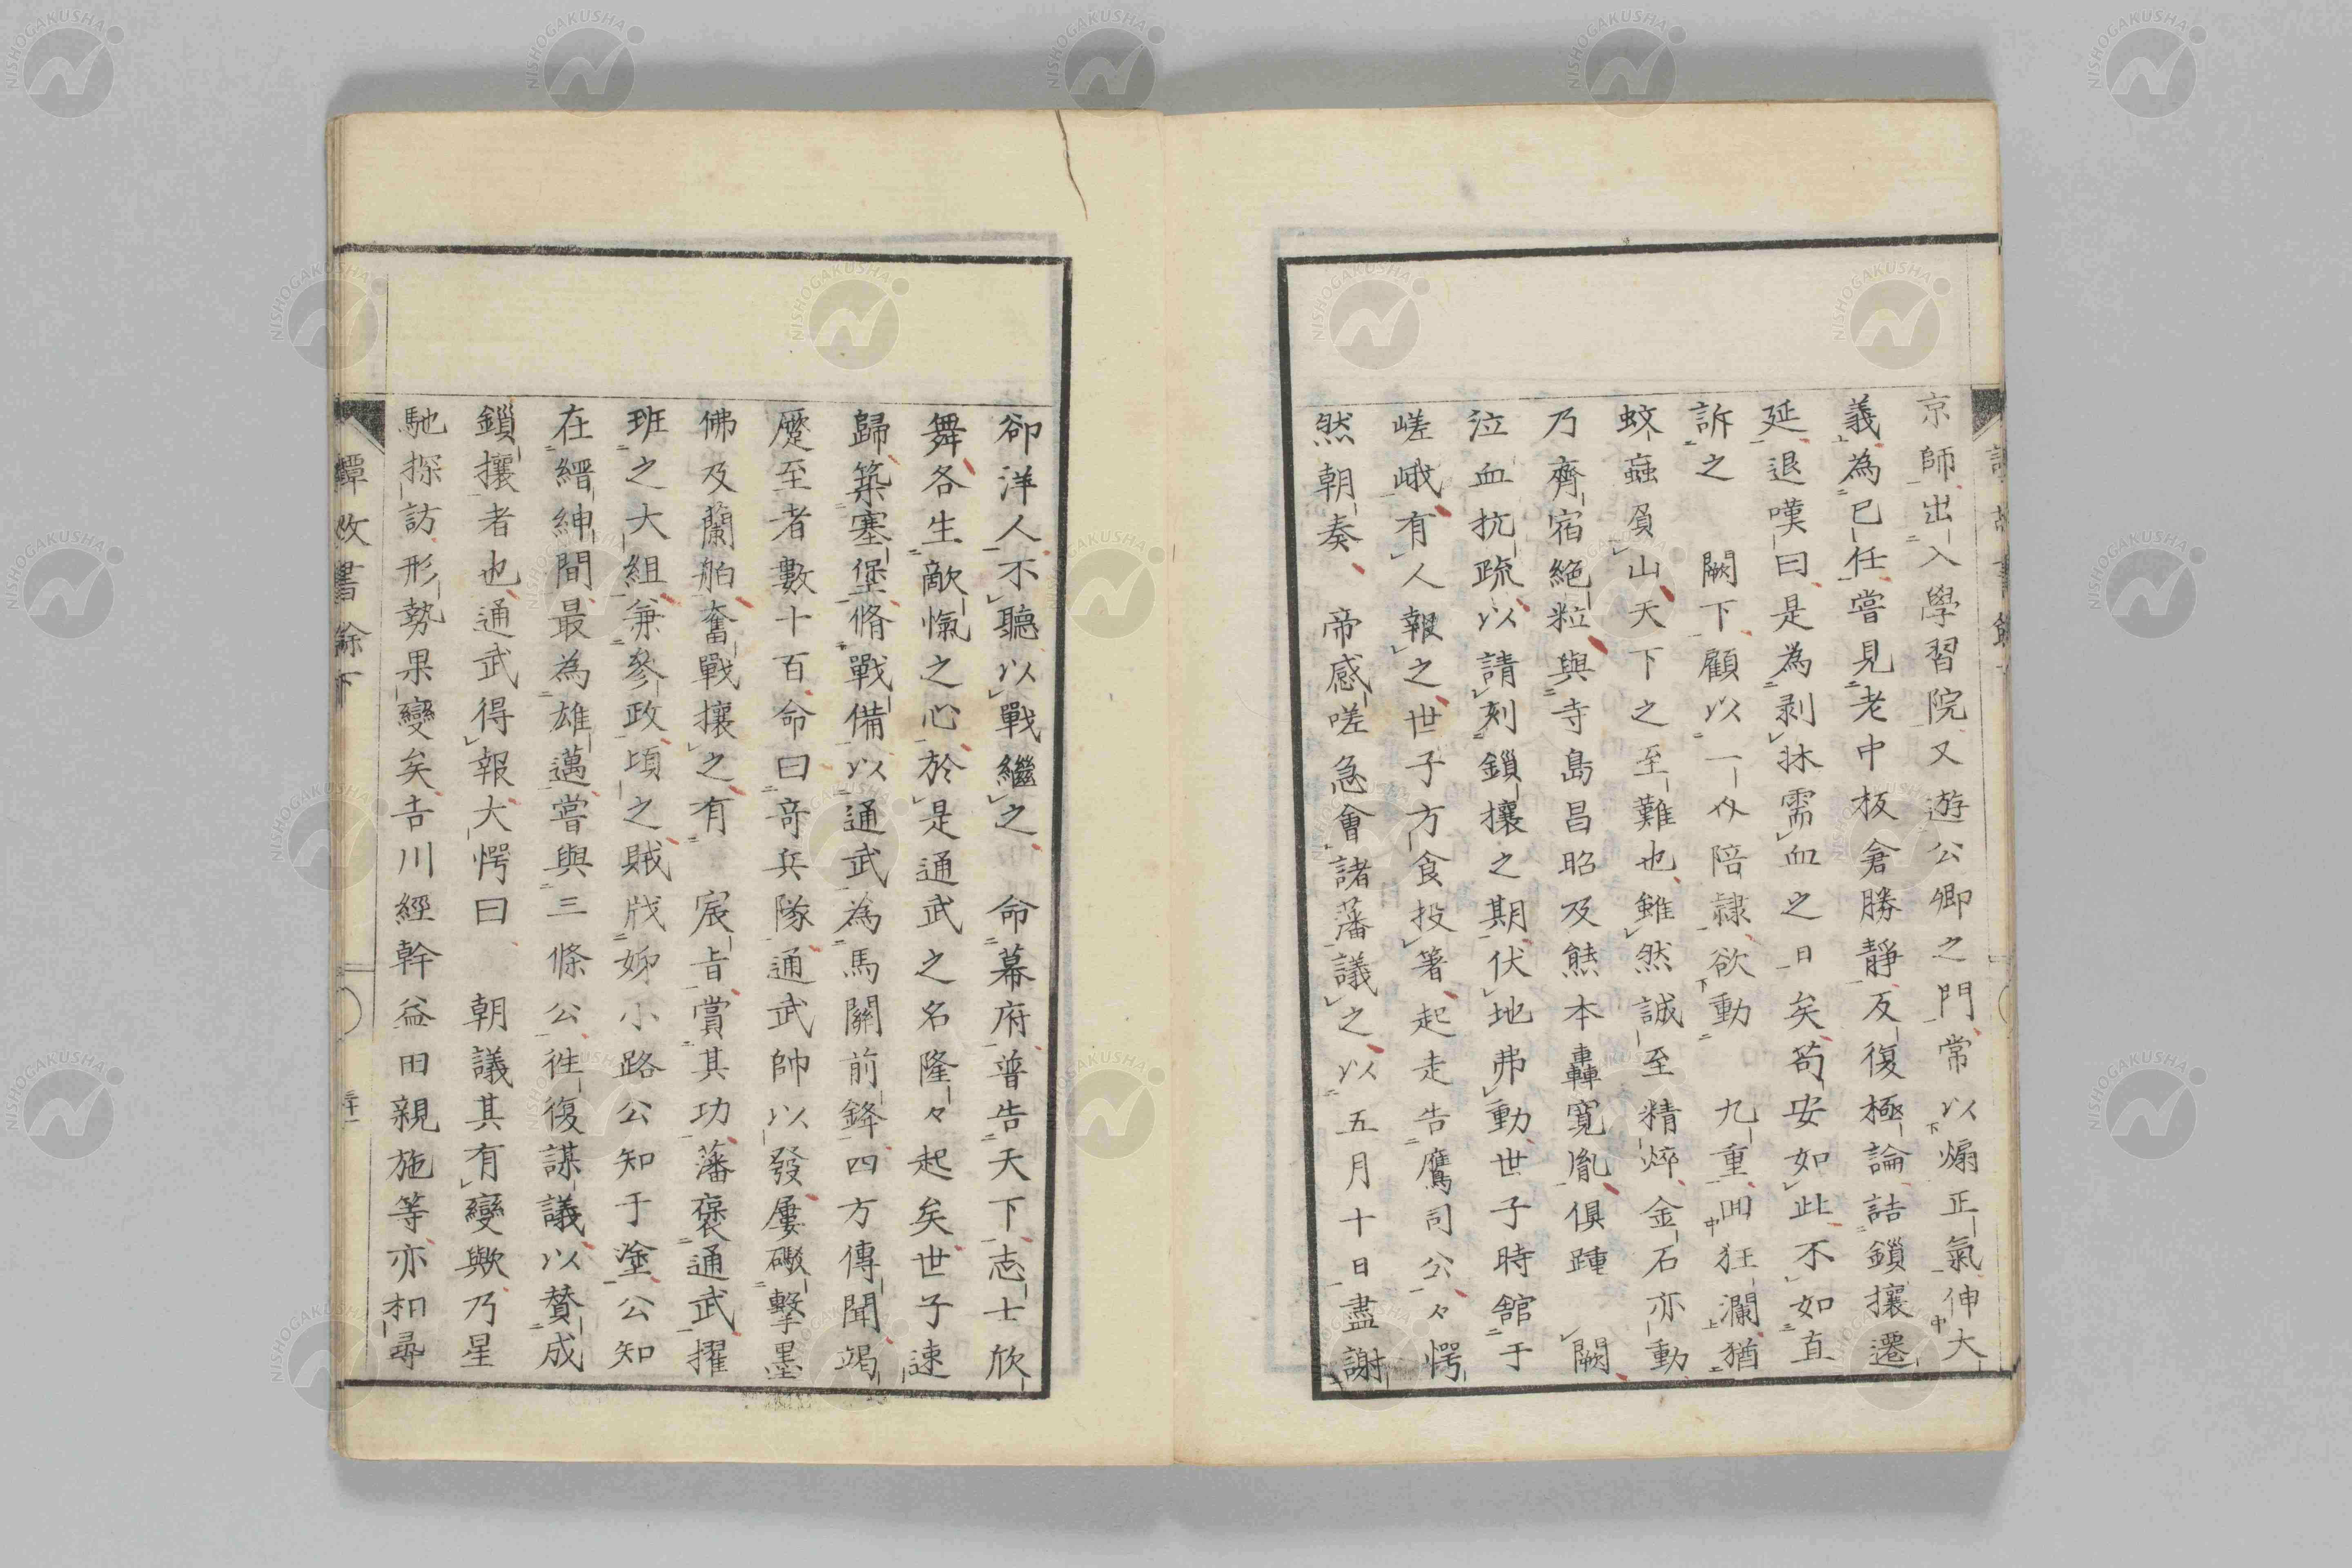 京師出入學習院又遊公卿之門常以煽正氣伸大
義為已任嘗見老中板倉勝靜反復極論詰鎖攘遷
延退嘆曰是為剥牀需血之日矣苟安如此不如直
訴之　闕下顧以一介陪隷欲動　九重回狂瀾猶
蚊蝱負山天下之至難也雖然誠至精焠金石亦動
乃齊宿絶粒與寺島昌昭及熊本轟寛胤俱踵　闕
泣血抗疏以請刻鎖攘之期伏地弗動世子時舘于
嵯峨有人報之世子方食投箸起走告鷹司公々愕
然朝奏　帝感嗟急會諸藩議之以五月十日盡謝
卻洋人不聽以戰繼之　命幕府普告天下志士欣
舞各生敵愾之心於是通武之名隆々起矣世子速
歸築塞堡脩戰備以通武為馬關前鋒四方傳聞竭
蹷至者數十百命曰竒兵隊通武帥以發屢礮擊墨
佛及蘭舶奮戰攘之有　宸旨賞其功藩褒通武擢
班之大組兼參政頃之賊戕姉小路公知于塗公知
在縉紳間最為雄邁嘗與三條公往復謀議以贊成
鎖攘者也通武得報大愕曰　朝議其有變歟乃星
馳探訪形勢果變矣吉川經幹益田親施等亦相尋